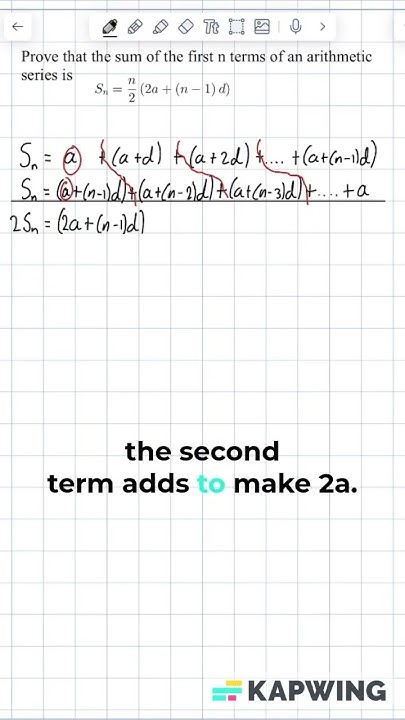 Prove that the sum of the first n terms of an arithmetic
series is
Sₙ = n/2 (2a + (n − 1) d)
Sₙ = a + (a+d) + (a+2d) + .... + (a+(n-1)d)
Sₙ = (a+(n-1)d) + (a+(n-2)d) + (a+(n-3)d) + .... + a
2Sₙ = (2a+(n-1)d)
the second
term adds to make 2a.
KAPWING